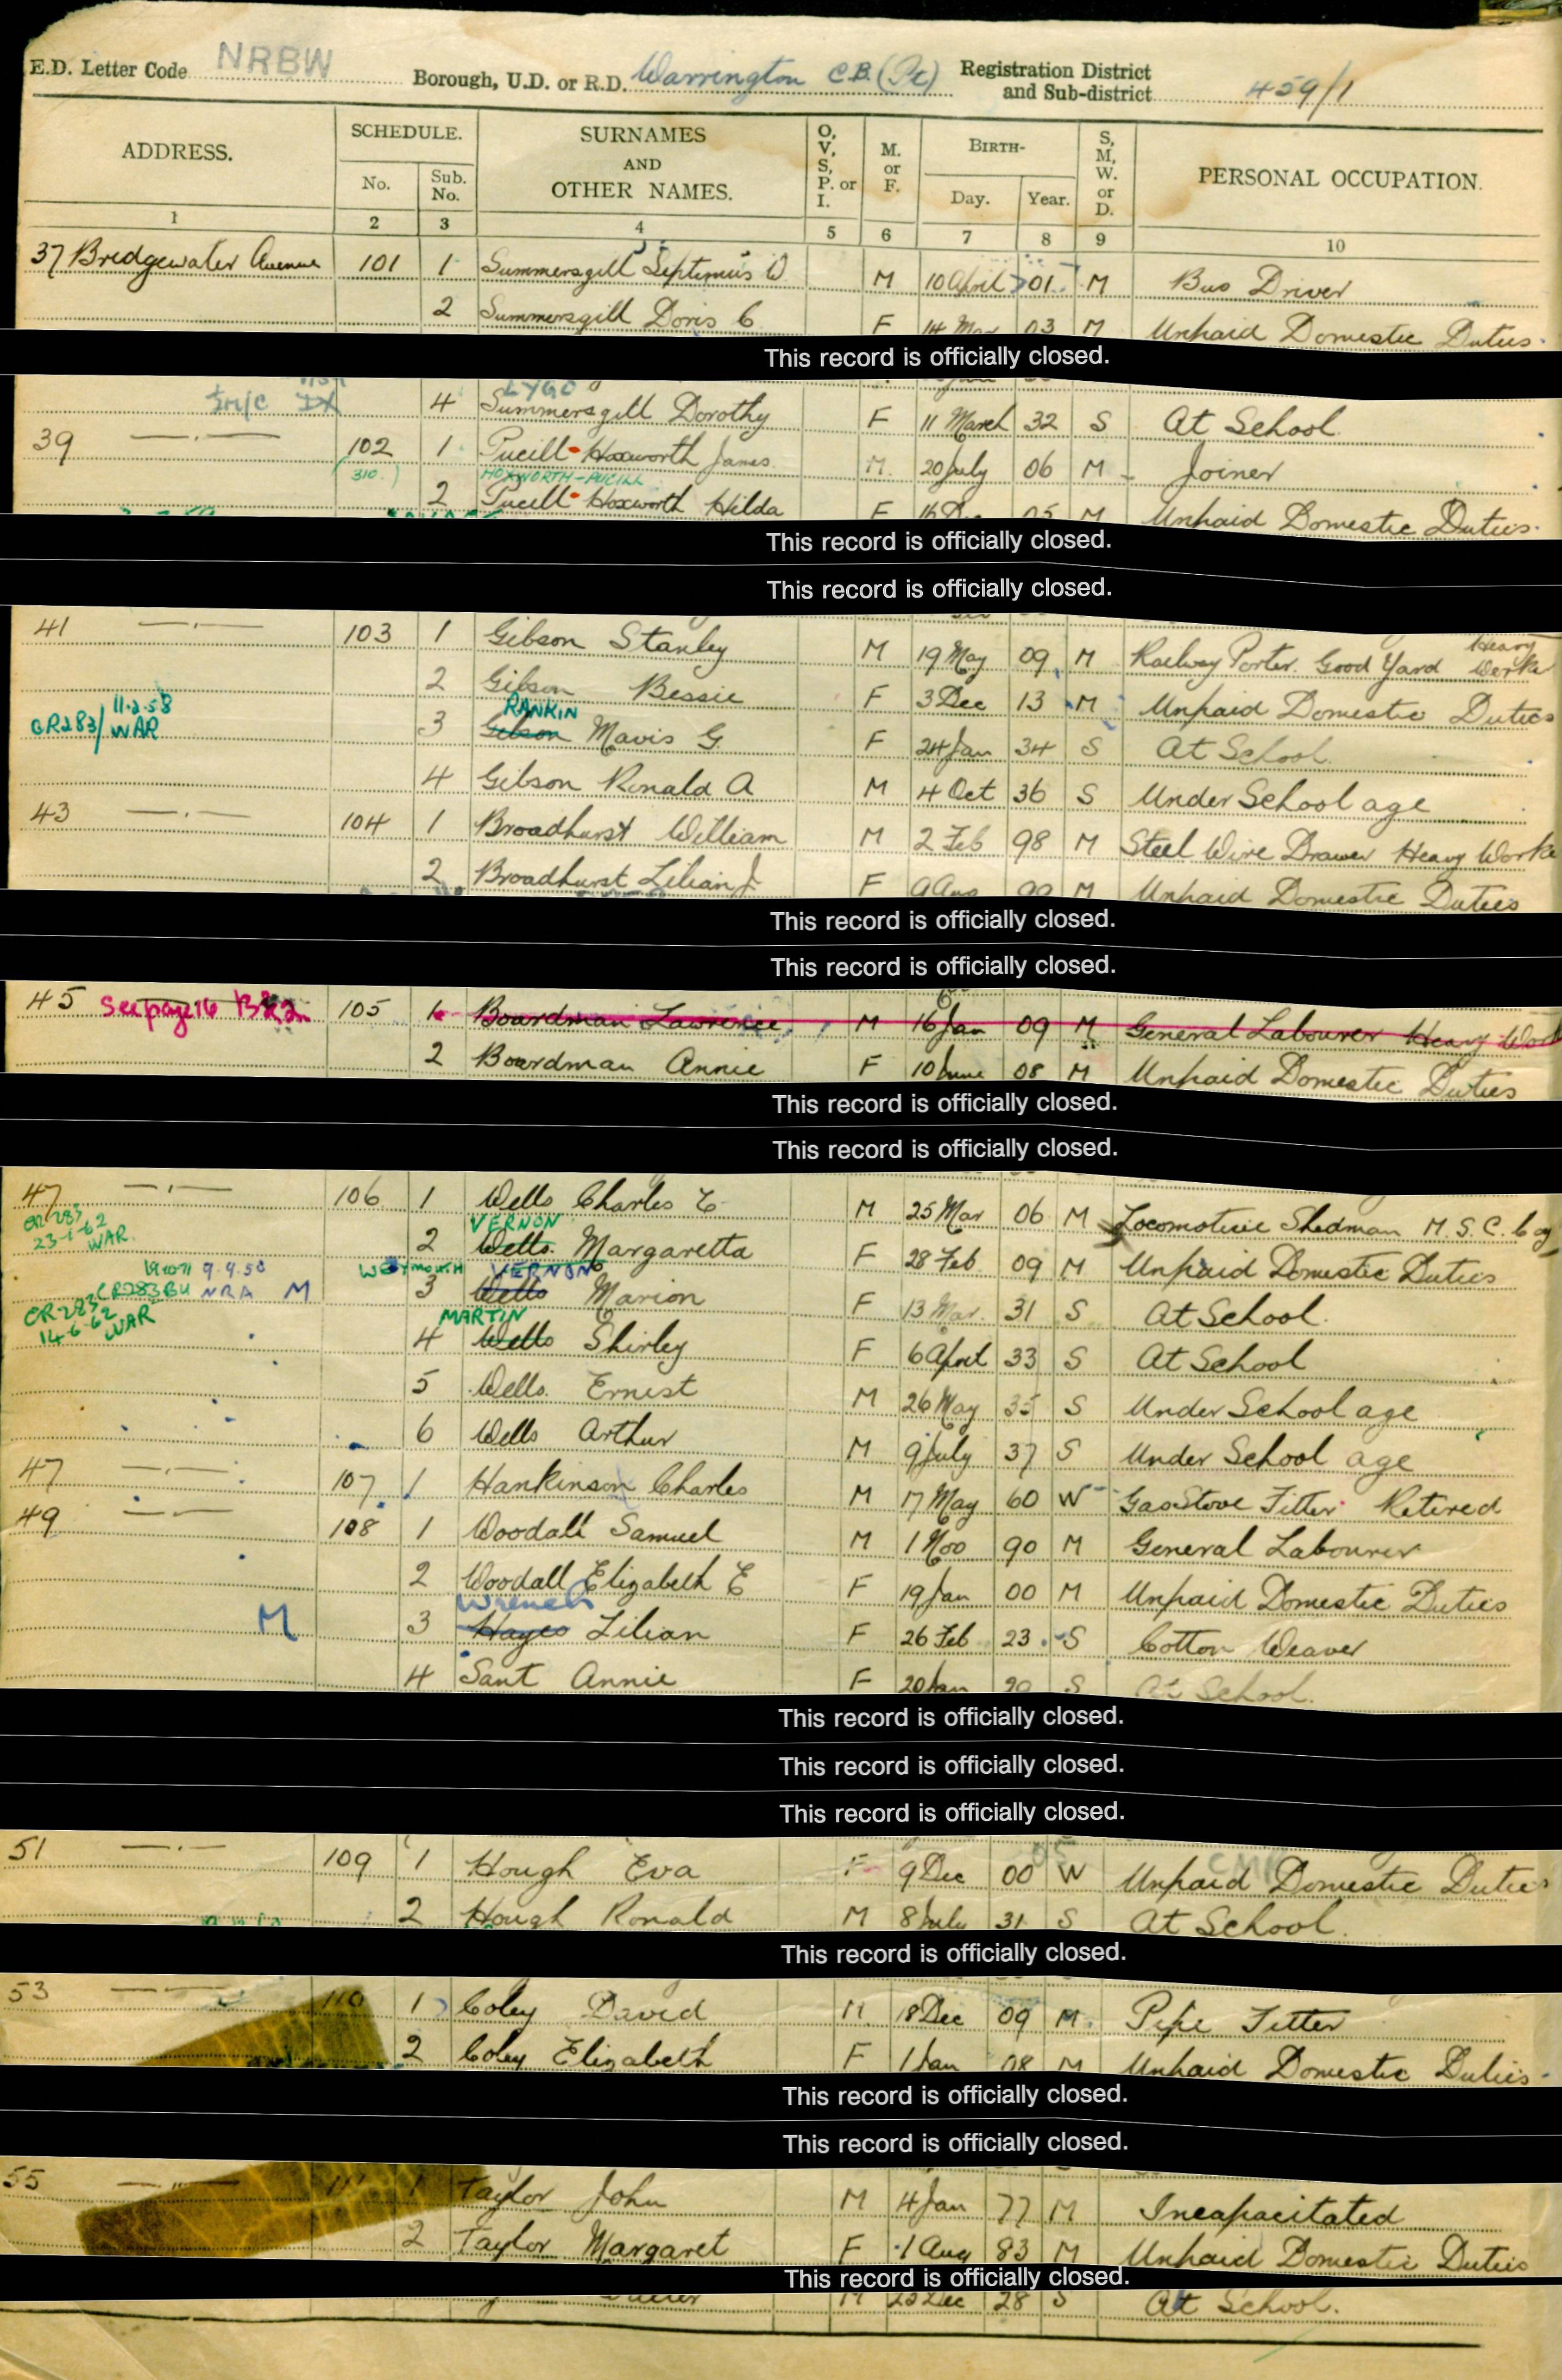 E.D. Letter Code NRBW Borough, U.D. or R.D. Warrington C.B. (Pt) Registration District and Sub-district 459/1
ADDRESS. SCHEDULE. No. Sub. No. SURNAMES AND OTHER NAMES. O, V, S, P. or I. M. or F. BIRTH- Day. Year. S, M, W. or D. PERSONAL OCCUPATION.
1 2 3 4 5 6 7 8 9 10
37 Bridgewater Avenue 101 1 Summersgill Septimus W M 10 April 01 M Bus Driver
2 Summersgill Doris C F 14 Mar 03 M Unpaid Domestic Duties
This record is officially closed.
LYGO
4 Summersgill Dorothy F 11 March 32 S At School
39 102 1 Pucill-Hoxworth James M 20 July 06 M Joiner
(310.) HOXWORTH-PUCILL
2 Pucill-Hoxworth Hilda F 16 Dec 05 M Unpaid Domestic Duties
This record is officially closed.
This record is officially closed.
41 103 1 Gibson Stanley M 19 May 09 M Railway Porter. Good Yard Heavy Worke
2 Gibson Bessie F 3 Dec 13 M Unpaid Domestic Duties
CR283/ 11.2.58 WAR RANKIN
3 Gibson Mavis G F 24 Jan 34 S At School
4 Gibson Ronald A M 4 Oct 36 S Under School age
43 104 1 Broadhurst William M 2 Feb 98 M Steel Wire Drawer Heavy Worke
2 Broadhurst Lilian J F 9 Aug 99 M Unpaid Domestic Duties
This record is officially closed.
This record is officially closed.
45 See page 16 105 1 Boardman Lawrence M 16 Jan 09 M General Labourer Heavy Work
2 Boardman Annie F 10 June 08 M Unpaid Domestic Duties
This record is officially closed.
This record is officially closed.
47 106 1 Wells Charles E M 25 Mar 06 M Locomotive Shedman M.S.C. Coy
CR 283 23-1-62 WAR. VERNON
2 Wells Margaretta F 28 Feb 09 M Unpaid Domestic Duties
9.9.50 WEYMOUTH VERNON
CR283 BU NRA M 3 Wells Marion F 13 Mar. 31 S At School
CR283 14-6-62 WAR MARTIN
4 Wells Shirley F 6 April 33 S At School
5 Wells Ernest M 26 May 35 S Under School age
6 Wells Arthur M 9 July 37 S Under School age
47 107 1 Hankinson Charles M 17 May 60 W Gas Stove Fitter Retired
49 108 1 Woodall Samuel M 1 Nov 90 M General Labourer
2 Woodall Elizabeth E F 19 Jan 00 M Unpaid Domestic Duties
Wrench
M 3 Hayes Lilian F 26 Feb 23 S Cotton Weaver
4 Sant Annie F 20 Jan 29 S At School.
This record is officially closed.
This record is officially closed.
This record is officially closed.
51 109 1 Hough Eva F 9 Dec 00 W Unpaid Domestic Duties
2 Hough Ronald M 8 July 31 S At School.
This record is officially closed.
53 110 1 Coley David M 18 Dec 09 M Pipe Fitter
2 Coley Elizabeth F 1 Jan 08 M Unpaid Domestic Duties
This record is officially closed.
This record is officially closed.
55 111 1 Taylor John M 4 Jan 77 M Incapacitated
2 Taylor Margaret F 1 Aug 83 M Unpaid Domestic Duties
This record is officially closed.
M 23 Dec 28 S At School.